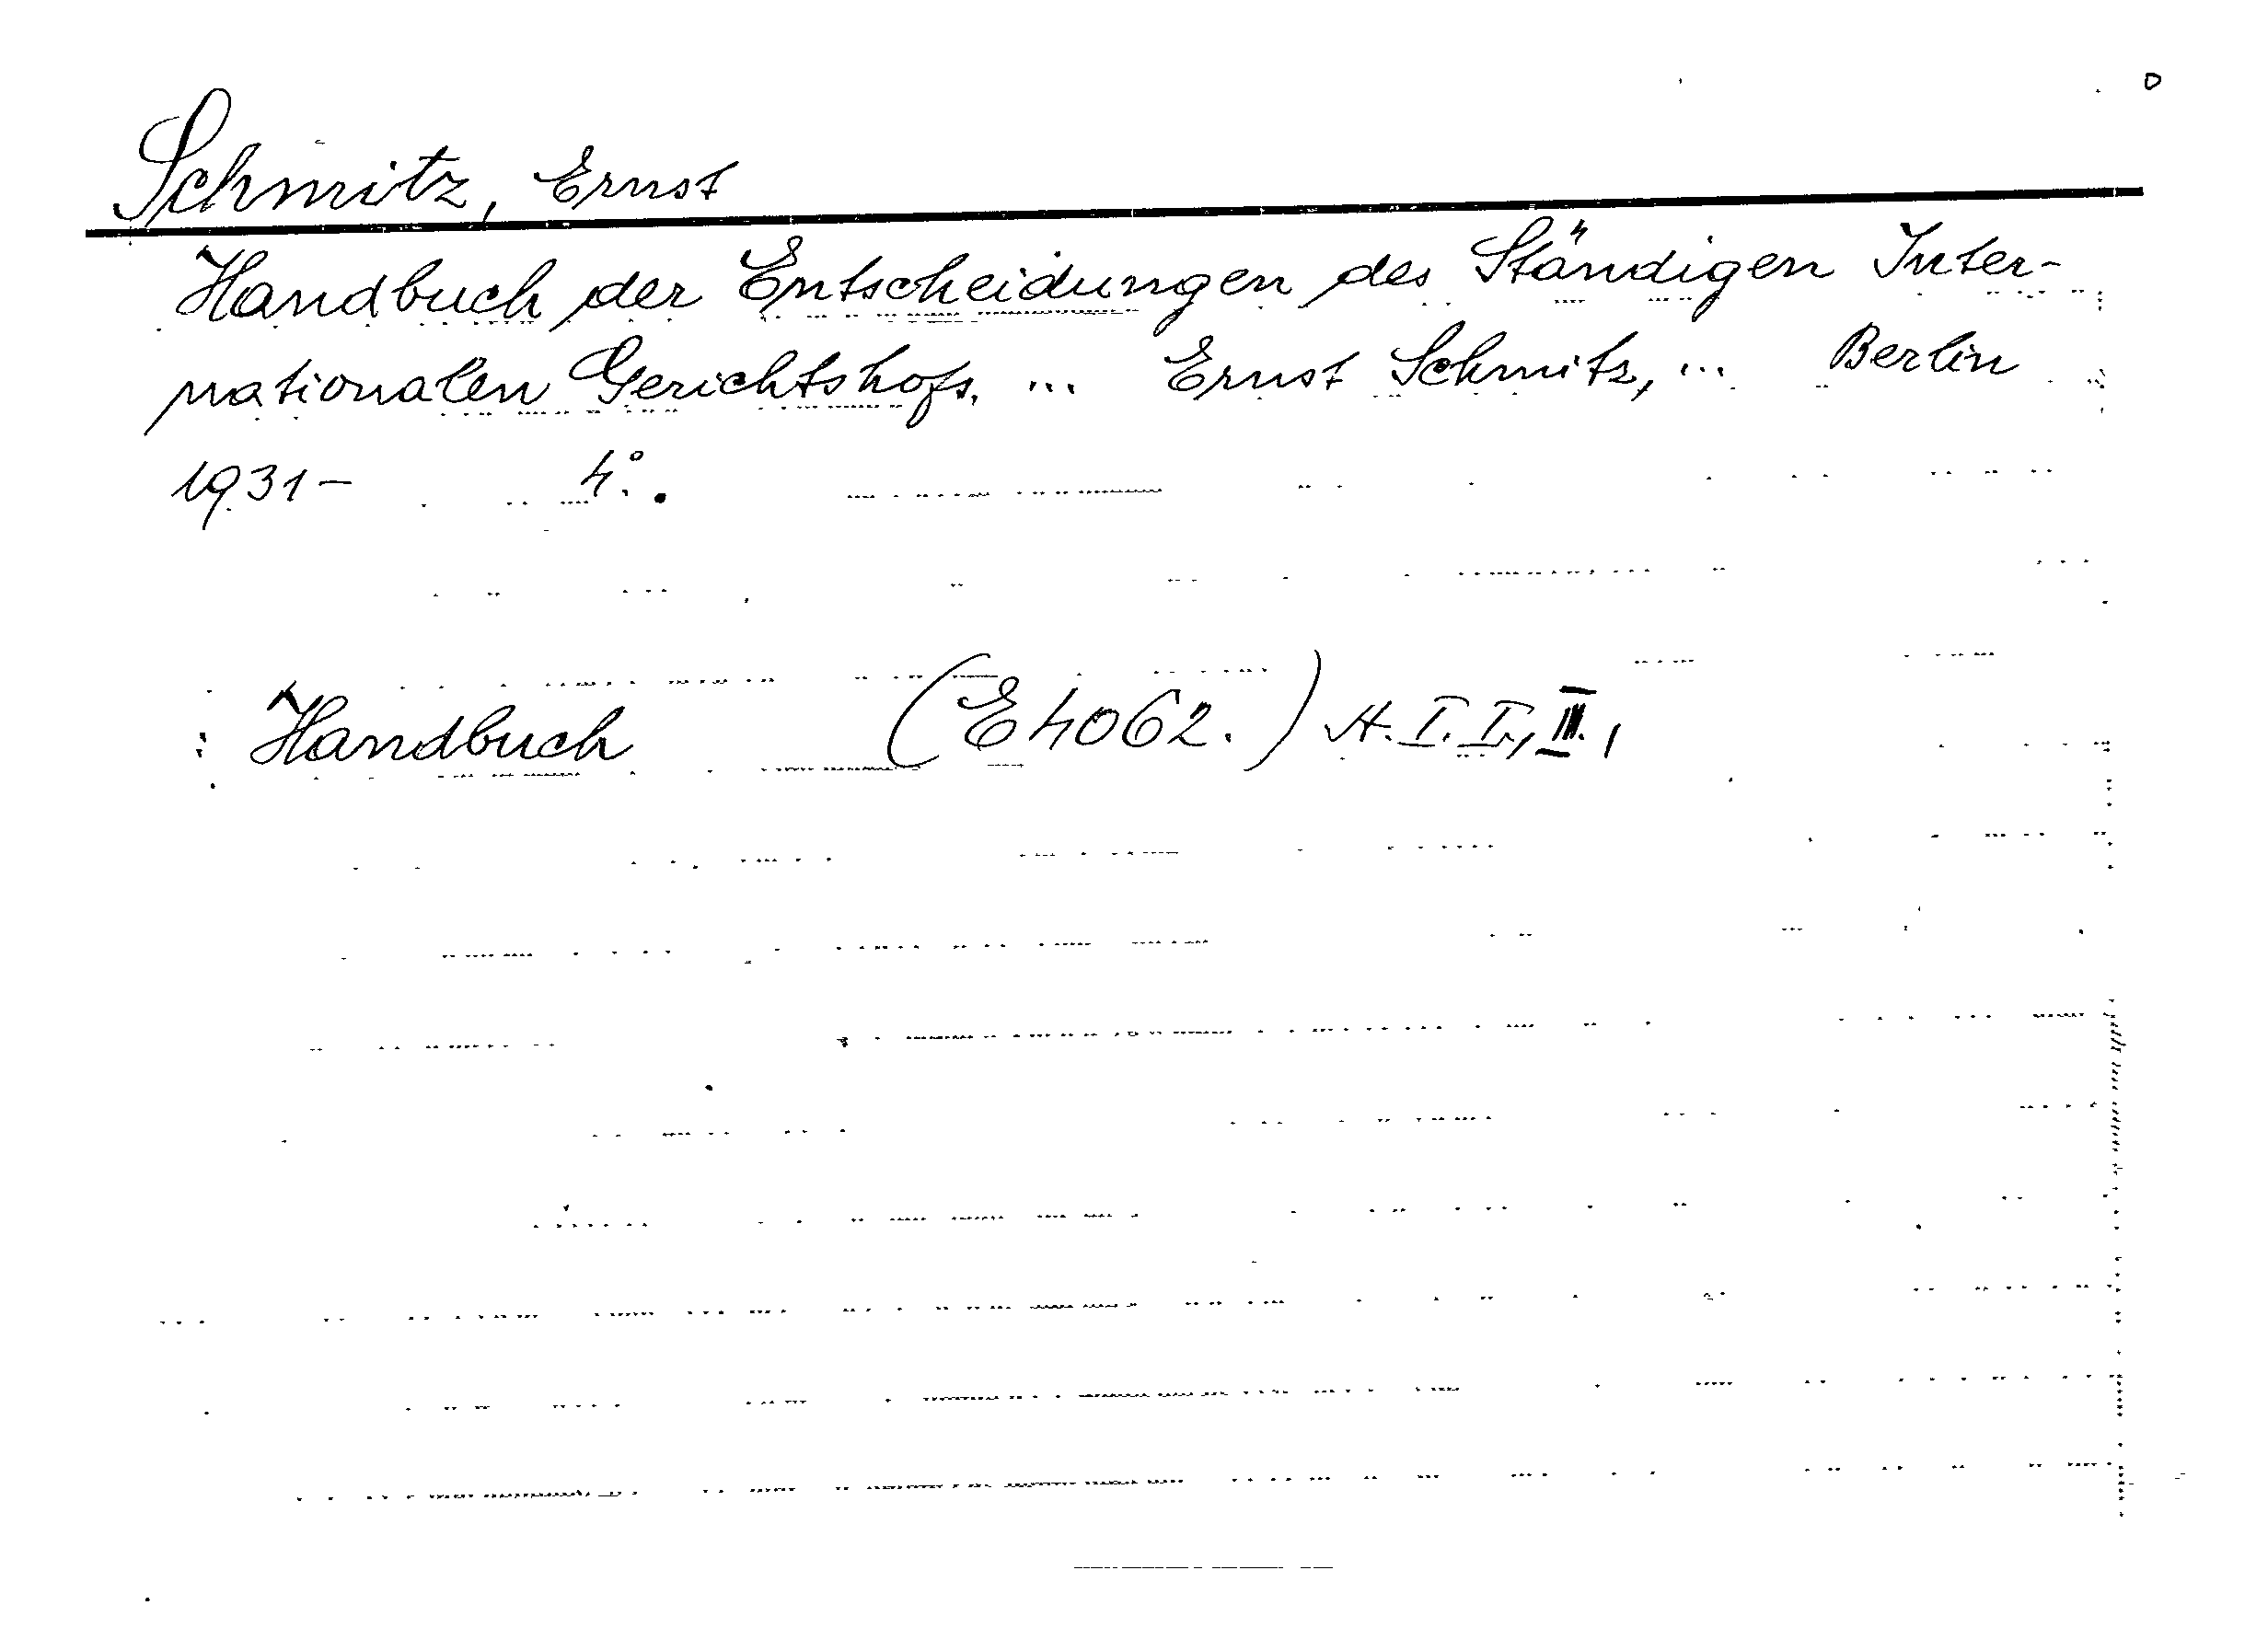 Schmitz, Ernst
Handbuch der Entscheidungen des Ständigen Inter-
nationalen Gerichtshofs. ... Ernst Schmitz, ... Berlin
1931- 4°.
: Handbuch (E4062.) A.I.I., II.,